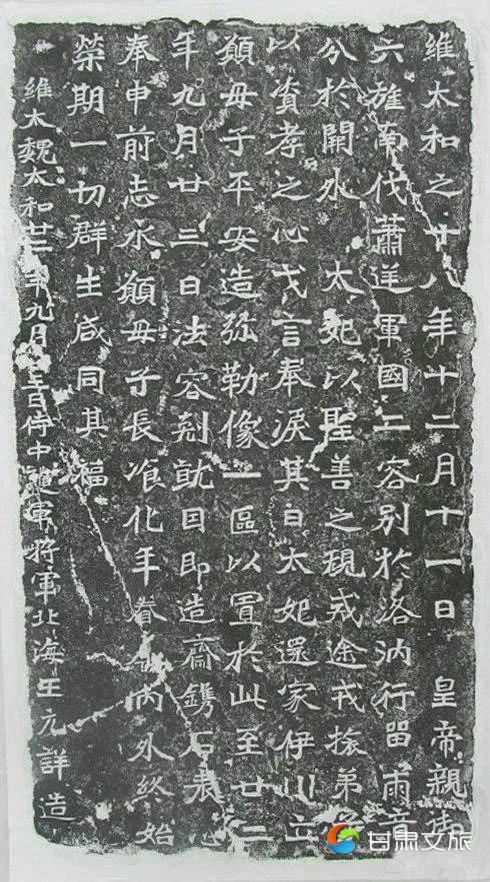 維太和之十八年十二月十一日 皇帝親御
六旌南伐蕭逆軍國二容別於洛汭行留兩音
分於闕外 太妃以聖善之規戒途戎旅弟子
以資孝之心戈言奉淚其日太妃還家伊川立
願母子平安造弥勒像一區以置於此至廿二
年九月廿三日法容剋就因即造齋鐫石表心
奉申前志永願母子長飡化年眷屬內外終始
榮期一切群生咸同其福
維大魏太和廿二年九月廿三日侍中護軍將軍北海王元詳造
甘肃文旅